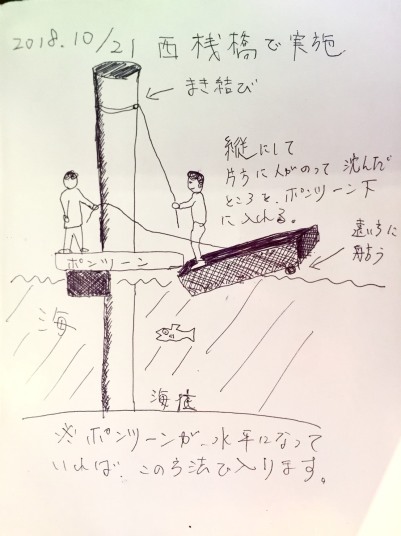 2018.10/21 西桟橋で実施
まき結び
縦にして
片方に人がのって沈んだ
ところを、ポンツーン下
に入れる。
遠い方に
舫う
ポンツーン
海
海底
※ポンツーンが、水平になって
いれば、この方法で入ります。